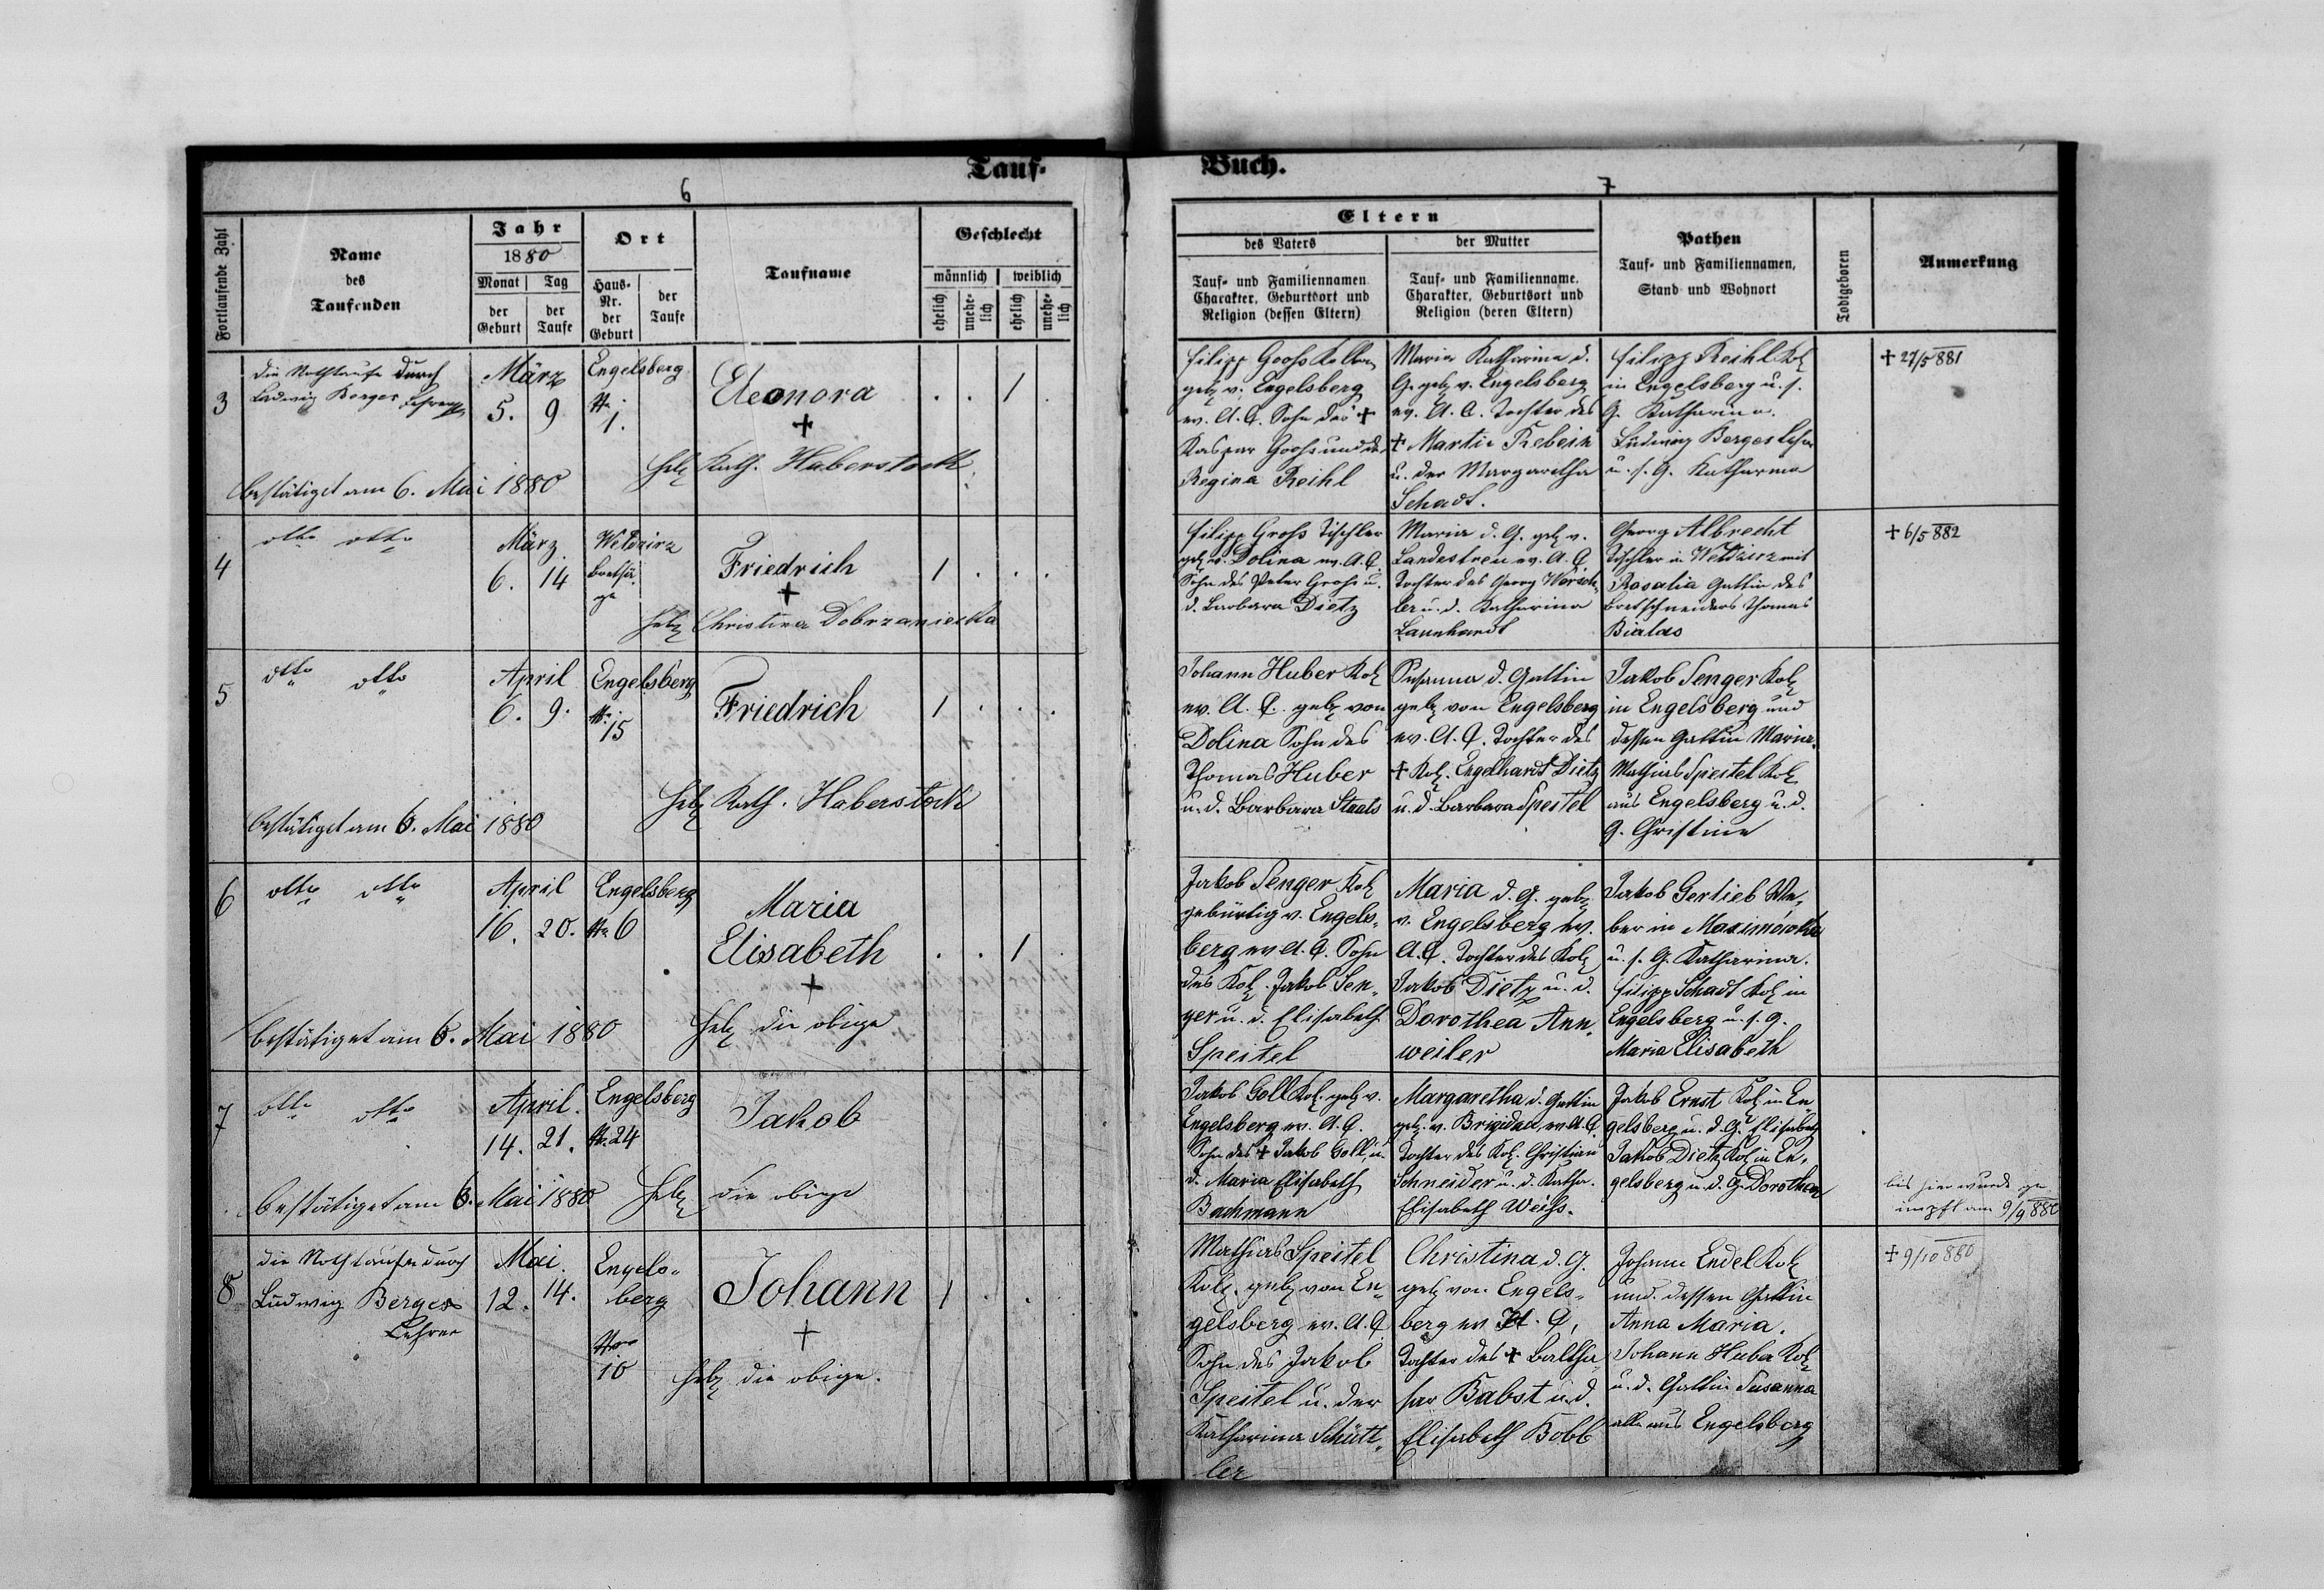 Tauf-
Buch.
6
7
Fortlaufende Zahl
Name
des
Taufenden
Jahr
1880
Monat
Tag
der
Geburt
der
Taufe
Ort
Haus-
Nr.
der
Geburt
der
Taufe
Taufname
Geschlecht
männlich
weiblich
ehelich
unehe-
lich
ehelich
unehe-
lich
Eltern
des Vaters
der Mutter
Tauf- und Familiennamen
Charakter, Geburtsort und
Religion (dessen Eltern)
Tauf- und Familienname.
Charakter, Geburtsort und
Religion (deren Eltern)
Pathen
Tauf- und Familiennamen,
Stand und Wohnort
Todtgeboren
Anmerkung
3
die Nothtaufe durch
Ludwig Berges Lehrer
März
5. 9
Engelsberg
Nr.
1.
Eleonora
+
. . 1 .
Heb Kath. Haberstock
bestätiget am 6. Mai 1880
Filipp Goohs
geb v. Engelsberg
ev. A.C. Sohn des +
Kaspar Goohs und der
Regina Reihl
Maria Katharina d.
G. geb v. Engelsberg
ev. A.C. Tochter des
+ Martin Trebein
u. der Margaretha
Schadt.
Filipp Reihl Kol
in Engelsberg u. s.
G. Katharina.
Ludwig Berges Lehrer
u. s. G. Katharina
+ 27/5 881
4
otto otto
März
6. 14
Weldzirz
Friedrich
+
1 . . .
Heb Christina Dobrzaniecka
Filipp Grohs Tischler
geb v. Dolina ev. A.C.
Sohn des Peter Grohs u.
d. Barbara Dietz
Maria d. G. geb v.
Landestreu ev. A.C.
Tochter des Georg Worsch-
ler u. d. Katharina
Launhardt
Georg Albrecht
Tischler in Weldzirz mit
Rosalia Gattin des
Bretschneiders Thomas
Bialas
+ 6/5 882
5
otto otto
April
6. 9.
Engelsberg
Nr.
15
Friedrich
1 . . .
Heb Kath. Haberstock
bestätiget am 6. Mai 1880
Johann Huber Kol
ev. A.C. geb von
Dolina Sohn des
Thomas Huber
u. d. Barbara Staats
Susanna d. Gattin
geb von Engelsberg
ev. A.C. Tochter des
+ Kol. Engelhardt Dietz
u. d. Barbara Speitel
Jakob Senger Kol
in Engelsberg und
dessen Gattin Maria.
Mathias Speitel Kol
aus Engelsberg u. d.
G. Christine
6
otto otto
April
16. 20.
Engelsberg
Nr. 6
Maria
Elisabeth
+
. . 1 .
Heb die obige
bestätiget am 6. Mai 1880
Jakob Senger Kol
gebürtig v. Engels-
berg ev A.C. Sohn
des Kol. Jakob Sen-
ger u. d. Elisabeth
Speitel
Maria d. G. geb
v. Engelsberg ev.
A.C. Tochter des Kol
Jakob Dietz u. d.
Dorothea Ann-
weiler
Jakob Gerlieb We-
ber in Maximówka
u. s. G. Katharina.
Filipp Schadt Kol in
Engelsberg u. s. G.
Maria Elisabeth
7
otto otto
April.
14. 21.
Engelsberg
Nr. 24
Jakob
Heb die obige
bestätiget am 6. Mai 1880
Jakob Goll Kol. geb v.
Engelsberg ev. A.C.
Sohn des + Jakob Goll u.
d. Maria Elisabeth
Bachmann
Margaretha d. Gattin
geb. v. Brigidau ev A.C.
Tochter des Kol. Christian
Schneider u. d. Katha.
Elisabeth Weihs.
Jakob Ernst Kol. in En
gelsberg u. d. G. Elisabeth
Jakob Dietz Kol in En-
gelsberg u. d. G. Dorothea
bis hier wurde ge
impft am 9/9 880
8
die Nothtaufe durch
Ludwig Berges
Lehrer
Mai.
12. 14.
Engels-
berg
Nro
10
Johann
+
1 . . .
Heb die obige.
Mathias Speitel
Kol. geb von En-
gelsberg ev. A.C.
Sohn des Jakob
Speitel u. der
Katharina Schütt-
ler
Christina d. G.
geb von Engels-
berg ev A.C.
Tochter des + Baltha-
sar Babst u. d.
Elisabeth Bobb
Johann Endel Kol
und dessen Gattin
Anna Maria.
Johann Huber Kol
u. d. Gattin Susanna
alle aus Engelsberg
+ 9/10 880